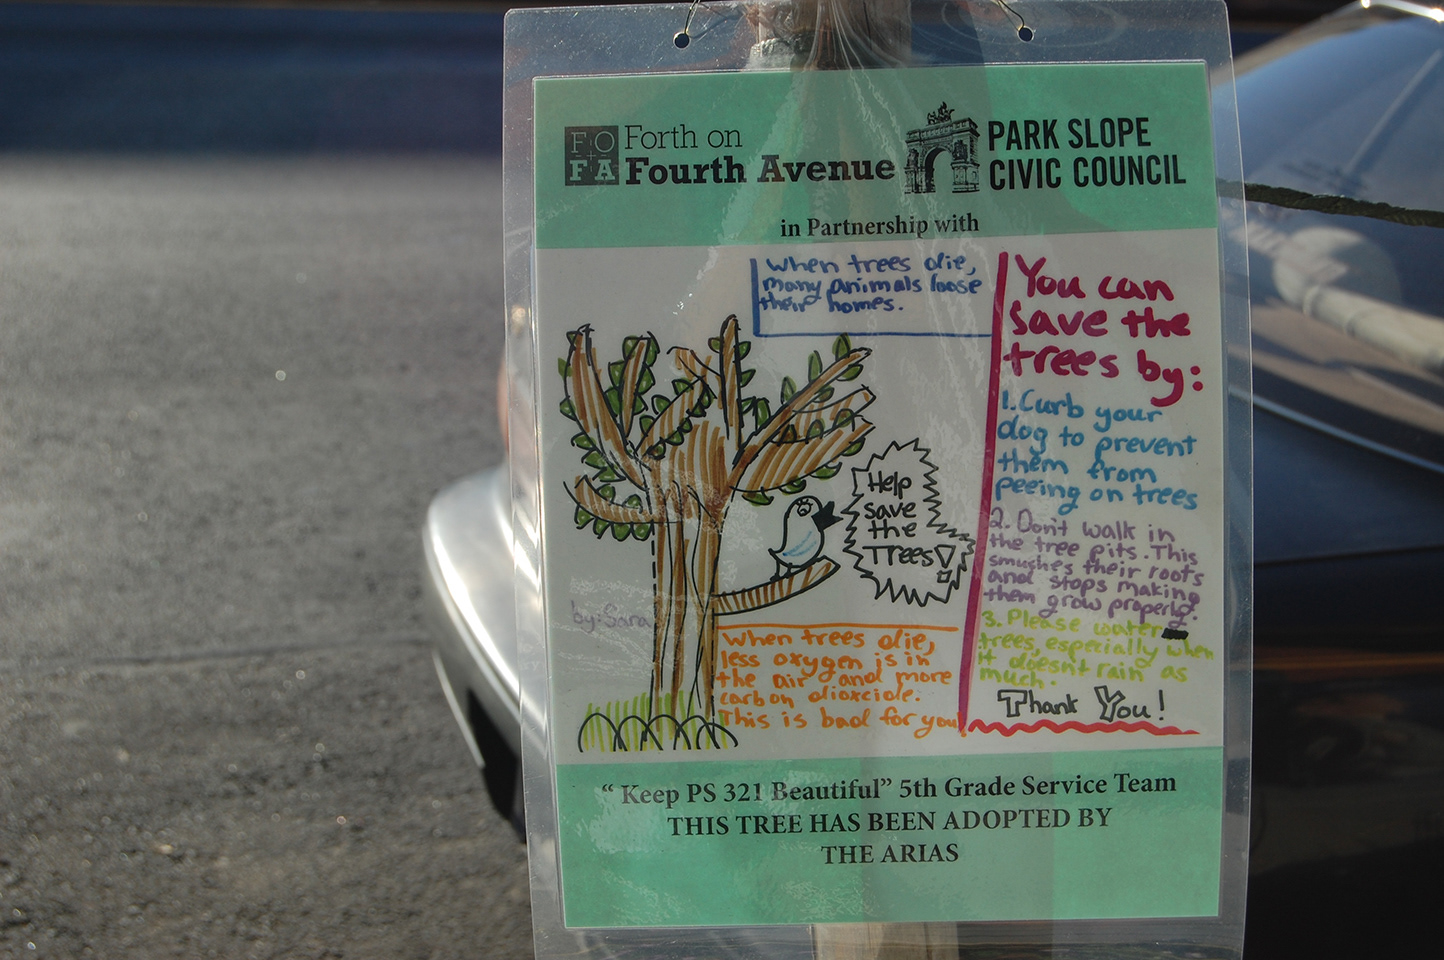 FO
FA
Forth on
Fourth Avenue
PARK SLOPE
CIVIC COUNCIL
in Partnership with
When trees die,
many animals loose
their homes.
You can
save the
trees by:
1. Curb your
dog to prevent
them from
peeing on trees
2. Don't walk in
the tree pits. This
smushes their roots
and stops making
them grow properly.
3. Please water
trees, especially when
it doesn't rain as
much.
Thank You!
Help
save
the
Trees!
by: Sara
When trees die,
less oxygen is in
the air and more
carbon dioxcide.
This is bad for you
“ Keep PS 321 Beautiful” 5th Grade Service Team
THIS TREE HAS BEEN ADOPTED BY
THE ARIAS